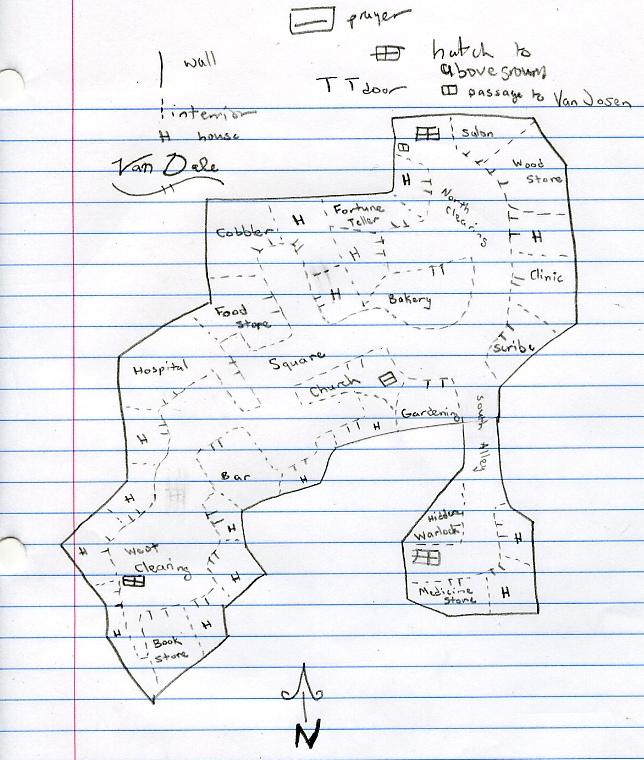 prayer
wall
hatch to
aboveground
T T door
passage to Van Josen
interior
H house
Van Dale
Salon
Wood
Store
H
North
Clearing
Fortune
Teller
H
Cobbler
H
H
Clinic
H
Bakery
Food
Store
Scribe
Square
Hospital
Church
Gardening
South Alley
H
H
Bar
H
H
Hidden
Warlock
H
H
West
Clearing
H
H
Medicine
Store
H
H
H
Book
Store
N